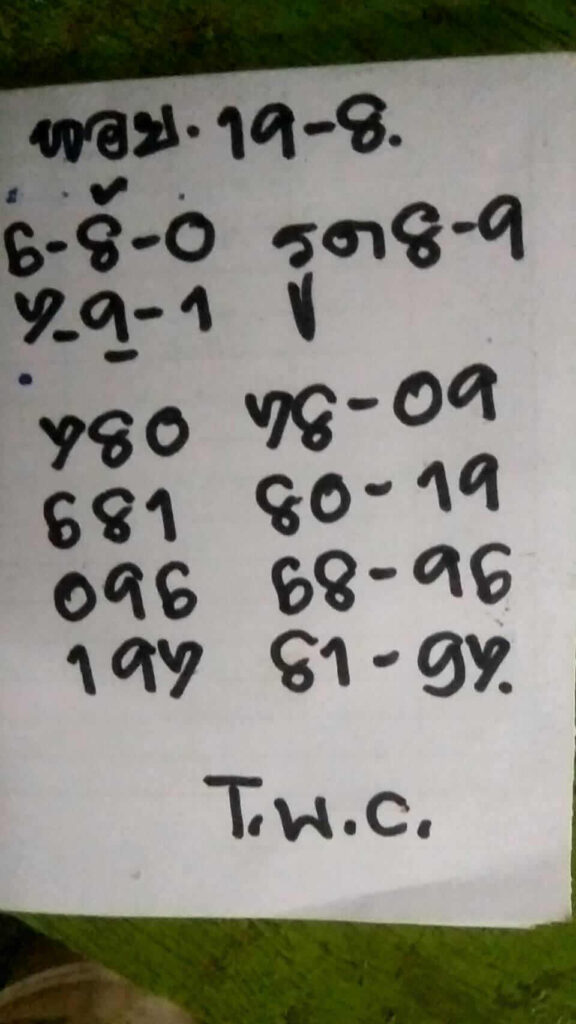 หอย. 19-8.
6-8-0 รูด 8-9
4-9-1
480 48-09
681 80-19
096 68-96
194 81-64.
T.W.C.